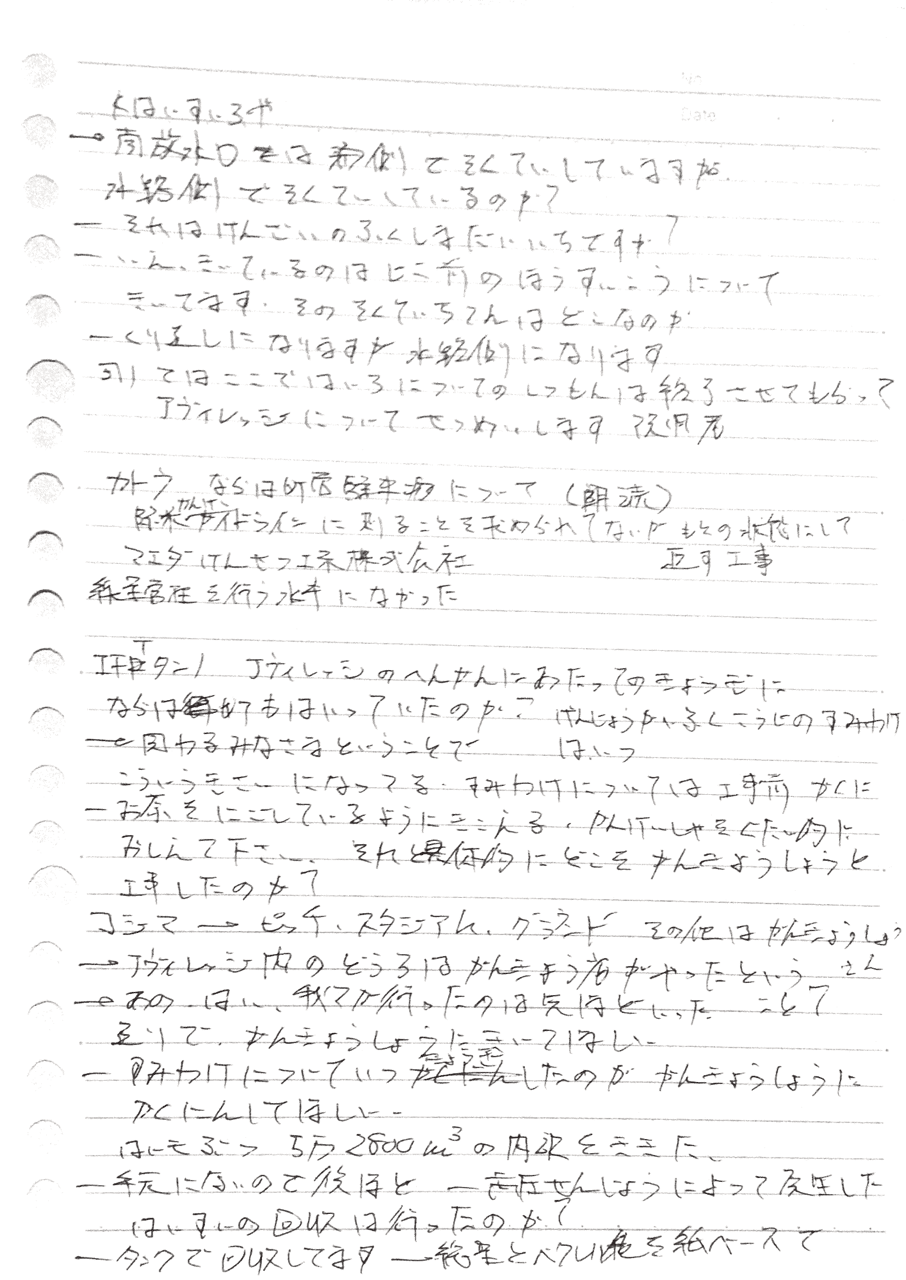 No.
Date
Kはいすいろや
→ 南放水口では 南側でそくていしていますが、
水路側でそくていしているのか？
— それはけんざいのふくしまだいいちですか？
— いえ、きいているのはじこ前のほうすいこうについて
きいてます．そのそくていちてんはどこなのか
— くり返しになりますが 水路側になります
司) ではここではいろについてのしつもんは終了させてもらって
Jヴィレッジについてせつめいします
カトウ ならは町 について（朗読）
ガイドラインに則ることを求められてないが もとの状態にして
マエダけんせつ工業株式会社 直す工事
を行う水準になかった
Jヴィレッジのへんかんにあたってのきょうぎに
ならは町もはいっていたのか？ げんじょうかいふくこうじのすみわけ
→ 関わるみなさまということで はいつ
こういうきさいになってる．すみわけについては工事前 かくに
— お茶をにごしているようにきこえる．かんけいしゃをぐたい的に
おしえて下さい、それと具体的にどこをかんきょうしょうと
工事したのか？
コジマ → ピッチ、スタジアム、グランド その他はかんきょうしょう
→ Jヴィレッジ内のどうろはかんきょう省がやったという
→ あの はい、我々が行ったのは先ほどいった こと？
通りで、かんきょうしょうにきいてほしい
— すみわけについていつ きょうぎ したのか かんきょうしょうに
かくにんしてほしい
はいきぶつ 5万2800m³の内訳をききた、
— 手元にないので後ほど — 高圧せんじょうによって発生した
はいすいの回収は行ったのか？
— タンクで回収してます — 総量とベクレル 値を紙ベースで